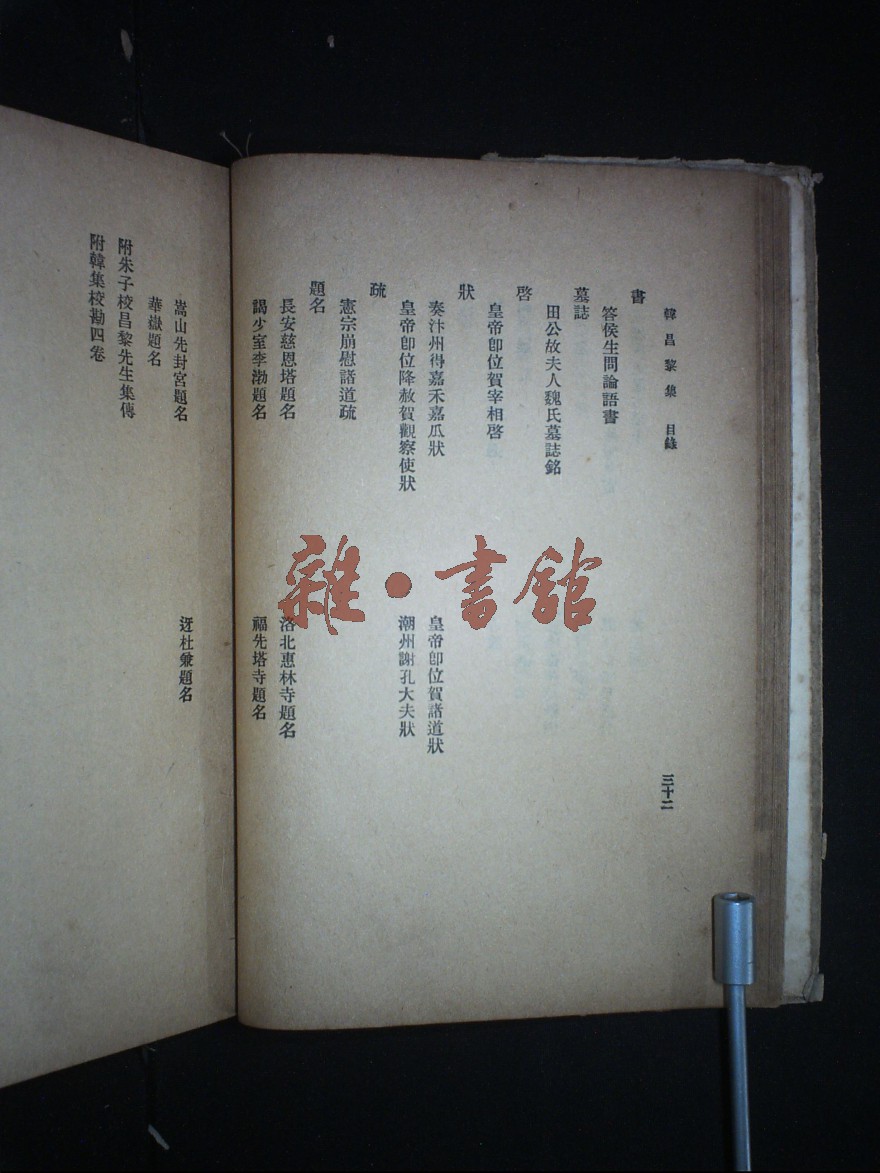 韓昌黎集 目錄
三十二
書
答侯生問論語書
墓誌
田公故夫人魏氏墓誌銘
啓
皇帝卽位賀宰相啓
狀
奏汴州得嘉禾嘉瓜狀
皇帝卽位賀諸道狀
皇帝卽位降赦賀觀察使狀
潮州謝孔大夫狀
疏
憲宗崩慰諸道疏
題名
長安慈恩塔題名
洛北惠林寺題名
謁少室李渤題名
福先塔寺題名
嵩山天封宮題名
迓杜兼題名
華嶽題名
附朱子校昌黎先生集傳
附韓集校勘四卷
雜·書館